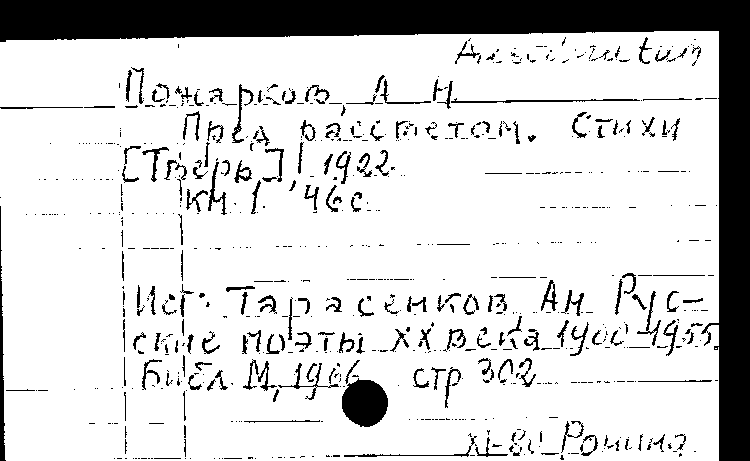 Desideratum
Пожарков, А Н.
Пред рассветом. Стихи
[Тверь], 1922.
кн. 1. 46с.
Ист: Тарасенков, Ан Рус-
ские поэты XX века 1900-1955.
Библ М, 1966 стр 302
XI-80 Ронина